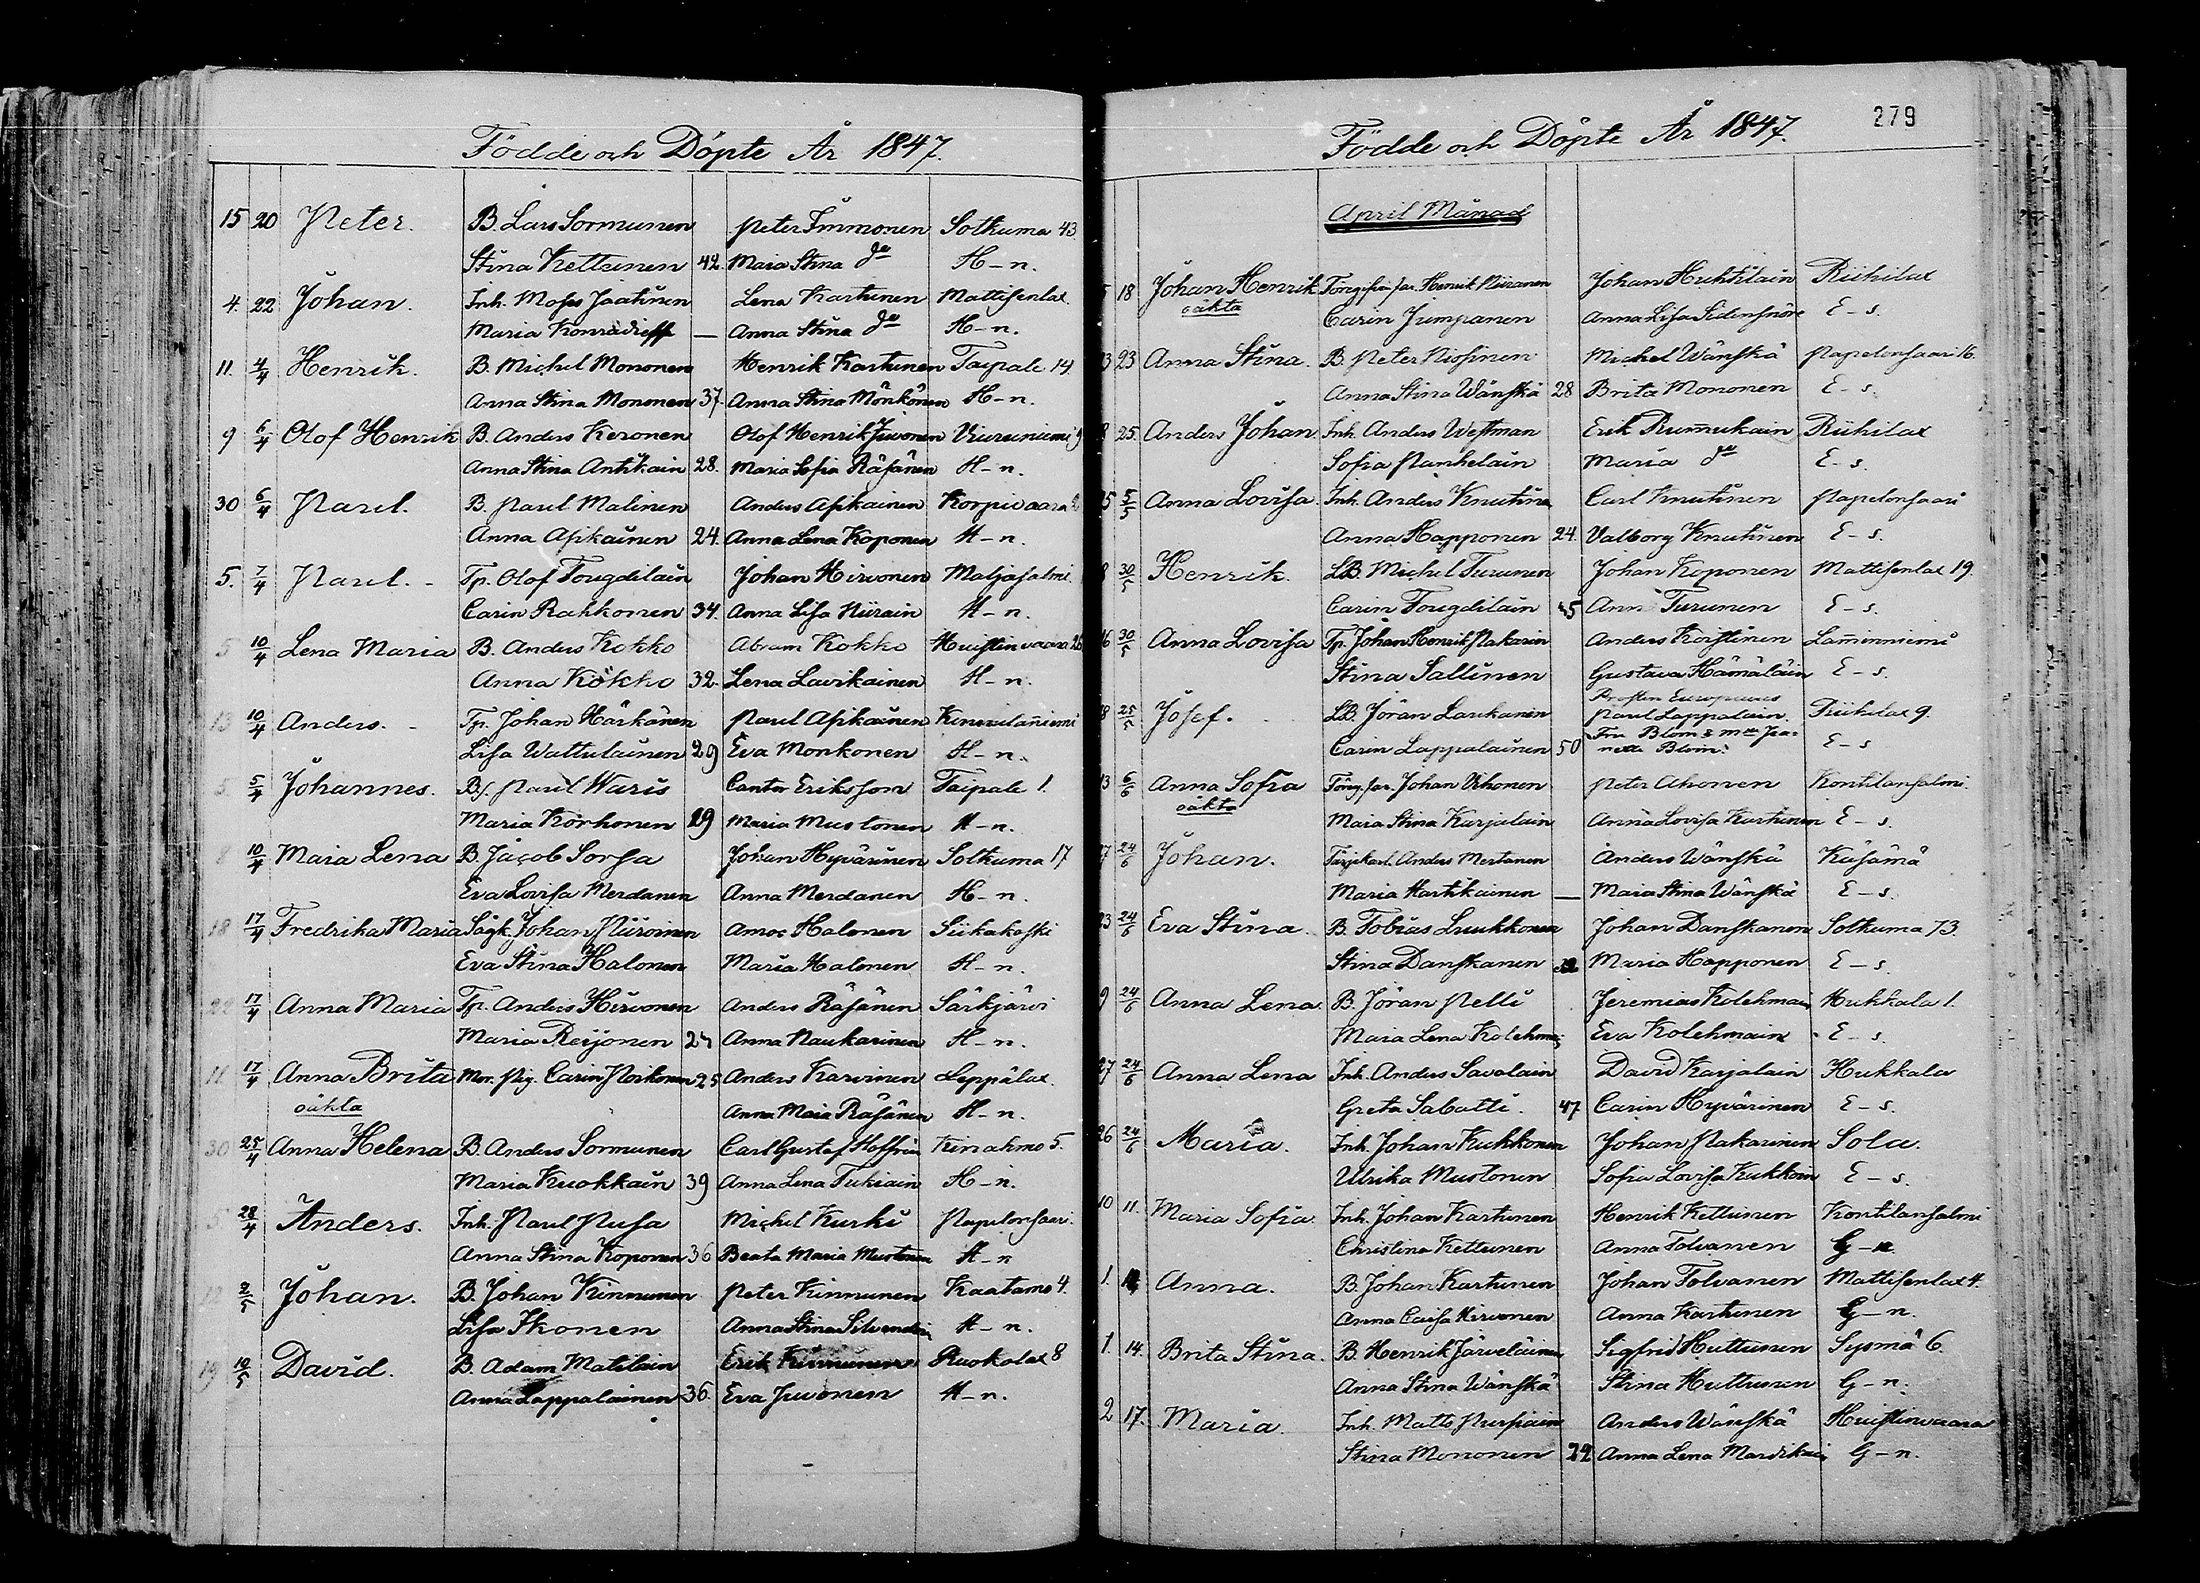 Födde och Döpte År 1847.
15 20 Peter. B. Lars Sormunen Peter Immonen Sotkuma 43.
Stina Kettunen 42. Maria Stina do H-n.
4. 22 Johan. Inh. Moses Jaatinen Lena Karttunen Mattisenlax
Maria Konradieff — Anna Stina do H-n.
11. 4/4 Henrik. B. Michel Mononen Henrik Karttunen Taipale 14.
Anna Stina Mononen 37. Anna Stina Mönkönen H-n.
9 6/4 Olof Henrik B. Anders Keronen Olof Henrik Juvonen Viuruniemi 9
Anna Stina Antikain 28. Maria Sofia Räsänen H-n.
30 6/4 Paul. B. Paul Malinen Anders Asikainen Korpivaara
Anna Asikainen 24. Anna Lena Koponen H-n.
5. 7/4 Paul. - Tp. Olof Tougdilain Johan Hirvonen Maljasalmi
Carin Rahkonen 34. Anna Lisa Niirain H-n.
5 10/4 Lena Maria B. Anders Kokko Abram Kokko Huistinvaara 26
Anna Kokko 32. Lena Lavikainen H-n.
13 10/4 Anders. - Tp. Johan Härkönen Paul Asikainen
Lisa Wattulainen 29 Eva Monkonen H-n.
5 5/4 Johannes. Bs. Paul Waris Cantor Eriksson Taipale 1.
Maria Korhonen 29 Maria Mustonen H-n.
8 10/4 Maia Lena B. Jacob Sorsa Johan Hyvärinen Sotkuma 17
Eva Lovisa Merdanen Anna Merdanen H-n.
18 17/4 Fredrika Maria Sågk. Johan Piiroinen Amos Halonen Siikakoski
Eva Stina Halonen Maria Halonen H-n.
22 17/4 Anna Maria Tp. Anders Hirvonen Anders Räsänen Särkjärvi
Maria Reijonen Anna Naukarinen H-n.
11 17/4 Anna Brita Mor. Pig. Carin Poikonen 25 Anders Karvinen Leppälax.
oäkta Anna Maia Räsänen H-n.
30 25/4 Anna Helena B. Anders Sormunen Carl Gustaf Hoffrén Kinahmo 5.
Maria Kuokkain 39 Anna Lena Tukiain H-n.
5 28/4 Anders. Inh. Paul Pusa Michel Kurki Papelonsaari.
Anna Stina Koponen 36 Beata Maria Mustonen H-n
12 2/5 Johan. B. Johan Kinnunen Peter Kinnunen Kaatamo 4.
Lisa Ikonen Anna Stina H-n.
19 10/5 David. B. Adam Matilain Erik Kinnunen Ruokolax 8
Anna Lappalainen 36. Eva Juvonen H-n.
279
Födde och Döpte År 1847.
April Månad
18 Johan Henrik Henrik Piiranen Johan Huhtilain Riihilax
oäkta Carin Jumpanen Anna Lisa Sidensnöre E-s.
23 Anna Stina. B. Peter Piosinen Michel Wänskä Papelonsaari 16.
Anna Stina Wänskä 28 Brita Mononen E-s.
25. Anders Johan Inh. Anders Westman Erik Rummukain Riihilax
Sofia Parhelain Maria do E-s.
5/5 Anna Lovisa Inh. Anders Knutinen Carl Knutinen Papelonsaari
Anna Happonen 24. Valborg Knutinen E-s.
30/5 Henrik. LB. Michel Turunen Johan Koponen Mattisenlax 19.
Carin Tougdilain 45 Anna Turunen E-s.
16 30/5 Anna Lovisa Tp. Johan Henrik Pakarin Anders Koistinen Lamminniemi
Stina Sallinen Gustava Hämäläin E-s.
25/5 Josef. LB. Jöran Laukanen Prosten Europaeus Paul Lappalain. Riihilax 9.
Carin Lappalainen 50 Fru Blom & mlle Jeanette Blom. E-s
13 6/6 Anna Sofia Johan Uhonen Peter Ahonen Kontilansalmi.
oäkta Maia Stina Karjalain Anna Lovisa Karttunen E-s.
24/6 Johan. Anders Mertanen Anders Wänskä Kusämä
Maria Hartikainen — Maia Stina Wänskä E-s.
23 24/6 Eva Stina. B. Tobias Luukkonen Johan Danskanen Sotkuma 73.
Stina Danskanen 32 Maria Happonen E-s.
9 24/6 Anna Lena. B. Jöran Pelli Jeremias Kolehmain Hukkala 1.
Maia Lena Kolehm Eva Kolehmain E-s.
27 24/6 Anna Lena Inh. Anders Savolain David Karjalain Hukkala
Greta Sabatti. 47 Carin Hyvärinen E-s.
26 24/6 Maria. Inh. Johan Kukkonen Johan Pakarinen Sola.
Ulrika Mustonen Sofia Lovisa Kukkoin E-s.
10 11. Maria Sofia. Inh. Johan Karttunen Henrik Kettunen Kontilansalmi
Christina Kettunen Anna Tolvanen G-n.
1. Anna. B. Johan Karttunen Johan Tolvanen Mattisenlax 4.
Anna Caisa Hirvonen Anna Karttunen G-n.
1. 14. Brita Stina. B. Henrik Järveläinen Sigfrid Huttunen Sysmä 6.
Anna Stina Wänskä Stina Huttunen G-n.
2 17. Maria. Inh. Matts Purpiain Anders Wänskä Huistinvaara
Stina Mononen 22 Anna Lena Mardikain G-n.